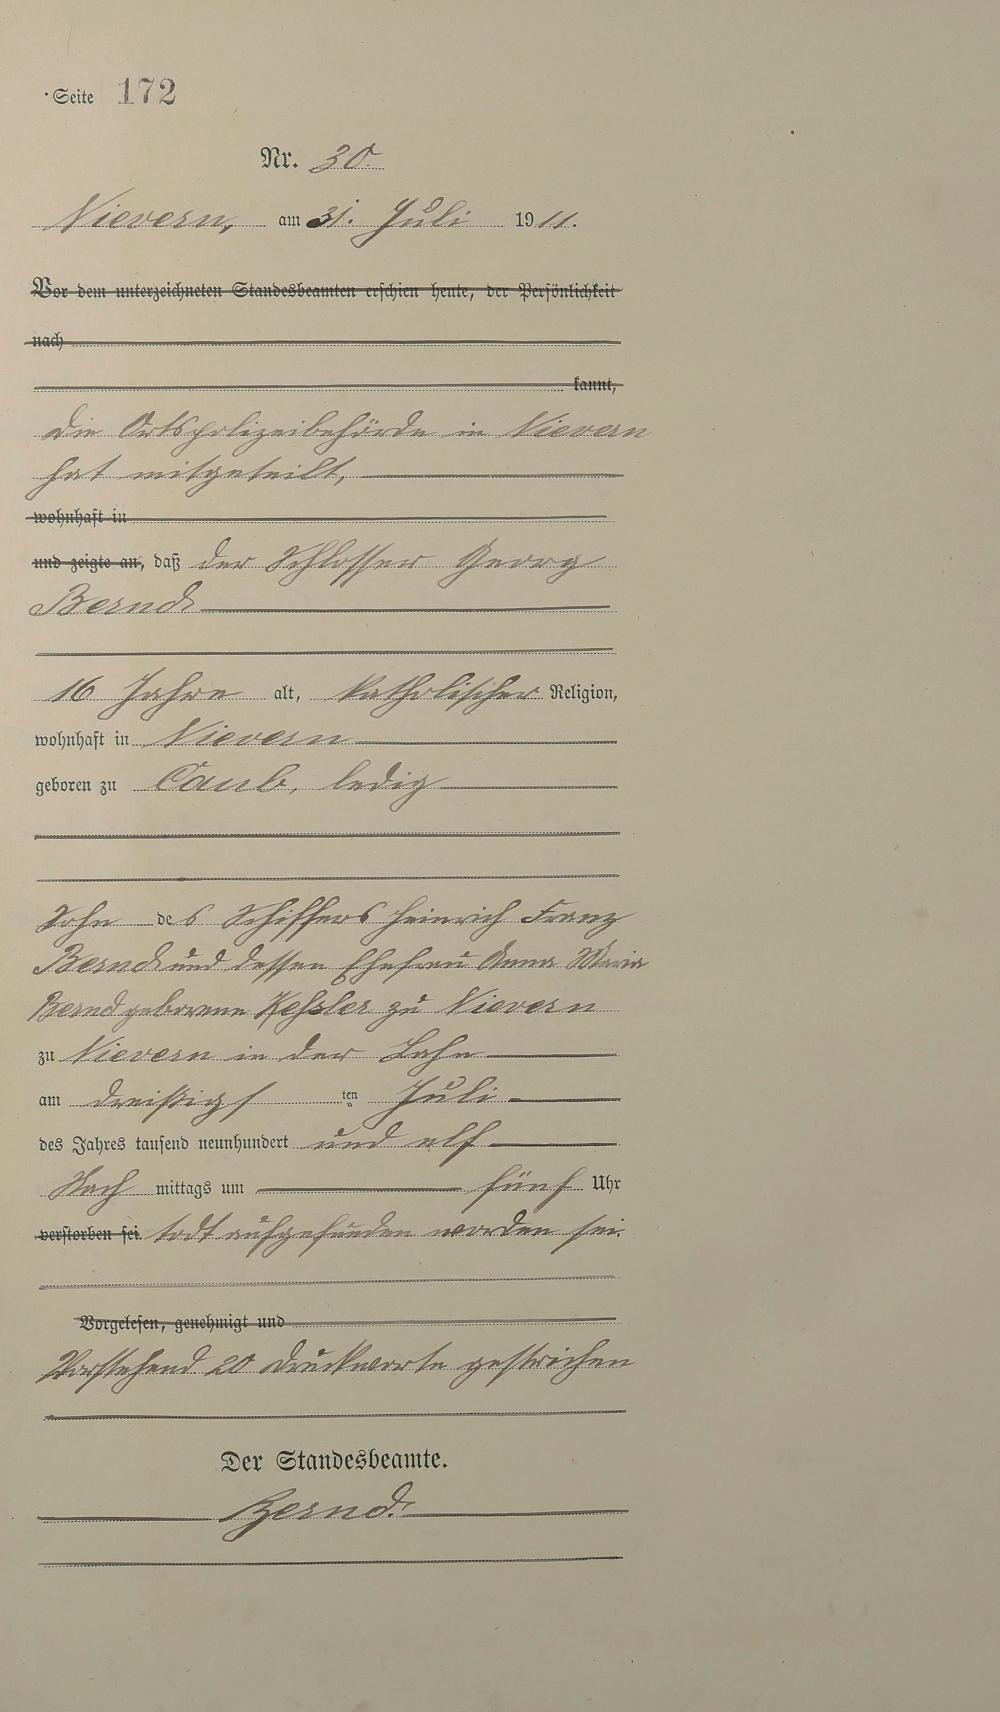 Seite 172
Nr. 30.
Nievern, am 31. Juli 1911.
Vor dem unterzeichneten Standesbeamten erschien heute, der Persönlichkeit
nach
kannt,
die Ortspolizeibehörde in Nievern
hat mitgeteilt,
wohnhaft in
und zeigte an, daß der Schlosser Georg
Bernd
16 Jahre alt, katholischer Religion,
wohnhaft in Nievern
geboren zu Caub, ledig
Sohn des Schiffers Heinrich Franz
Bernd und dessen Ehefrau Anna Maria
Bernd geborene Keßler zu Nievern
zu Nievern in der Lahn
am dreißigsten Juli
des Jahres tausend neunhundert und elf
Nach mittags um fünf Uhr
verstorben sei. todt aufgefunden worden sei.
Vorgelesen, genehmigt und
Vorstehend 20 Druckworte gestrichen
Der Standesbeamte.
Bernd.